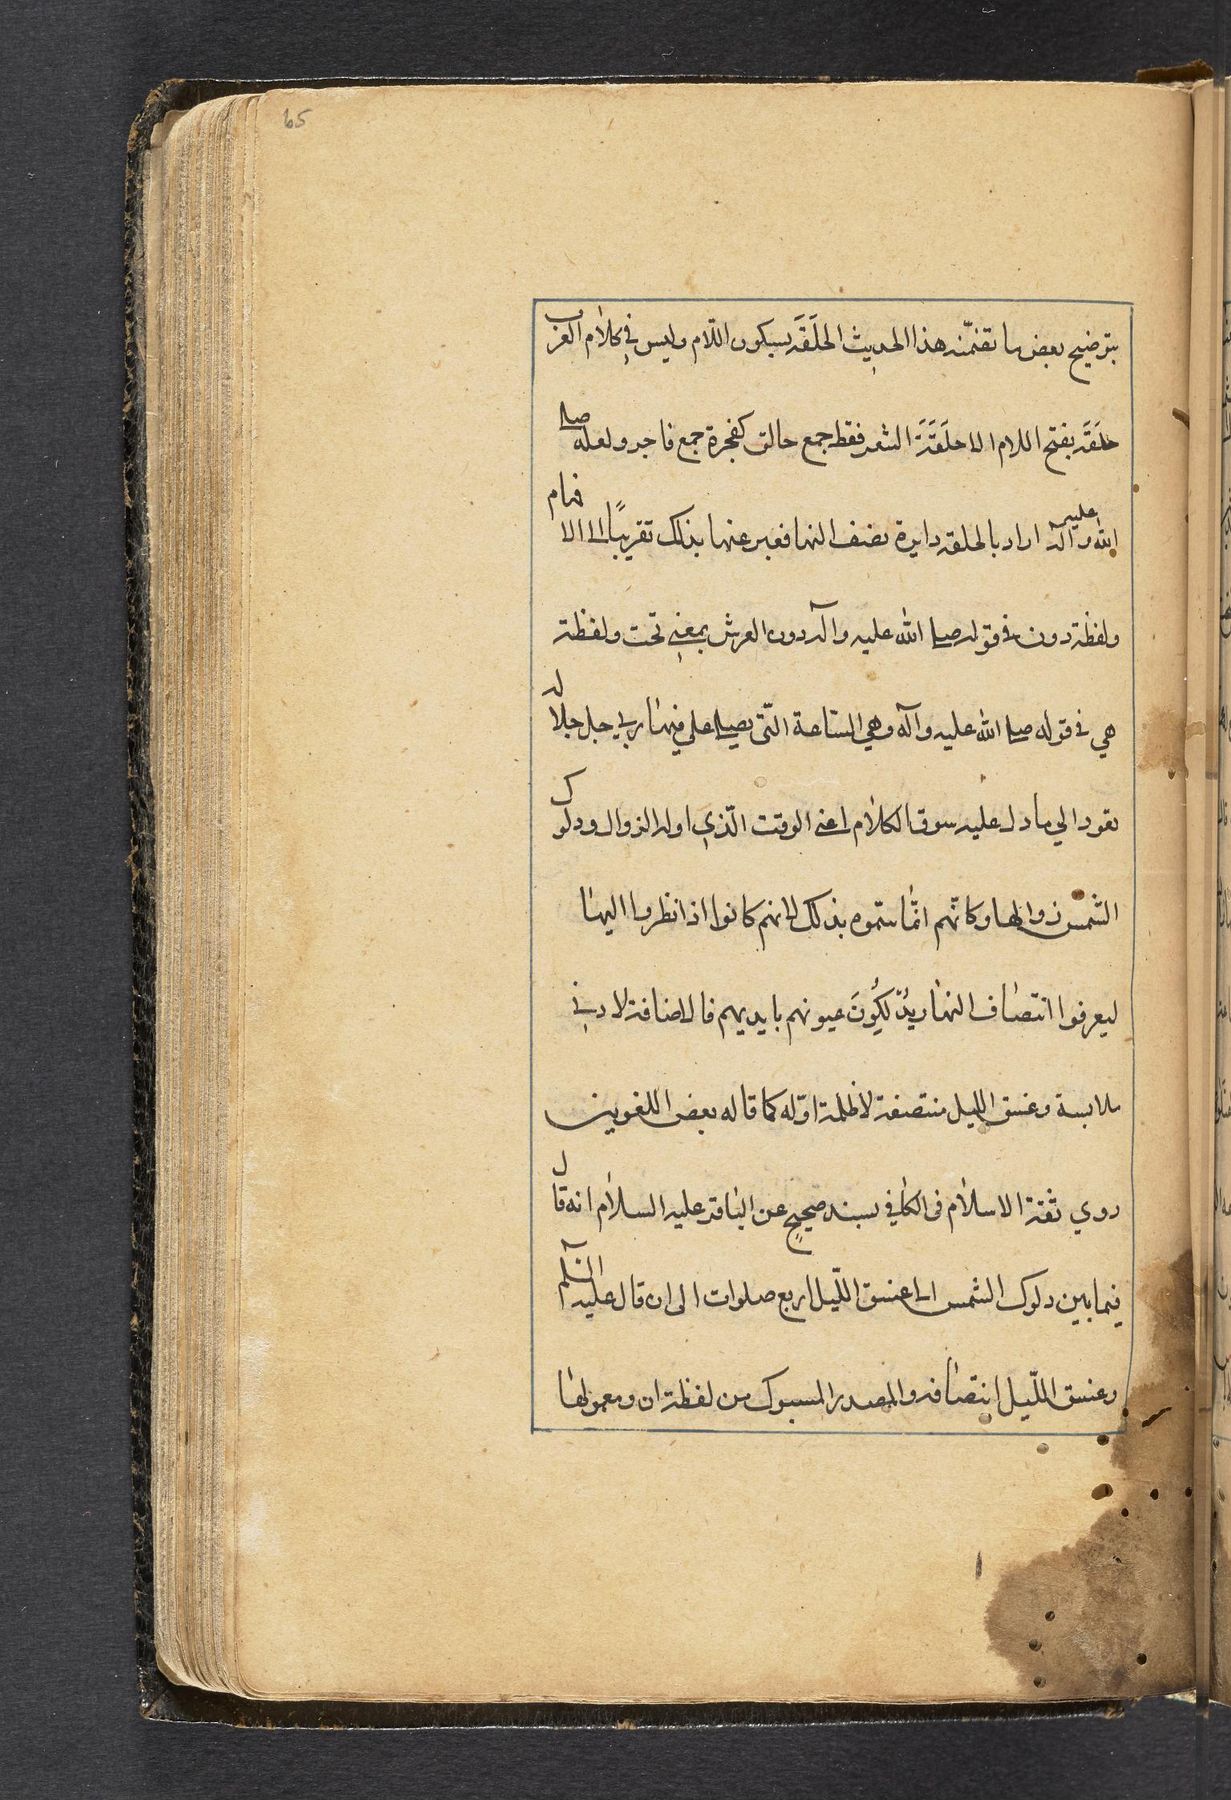 65
بتوضيح بعض ما تضمّنه هذا الحديث الحلَقَه بسكون اللّام وليس في كلام العرب
حلَقَه بفتح اللام الا حلَقَةَ الشعر فقط جمع حالق كفجرة جمع فاجر ولعله صلى
الله عليه وآله اراد بالحلقه دايرة نصف النهار فعبر عنها بذلك تقريبًا الى الافهام
ولفظة دون في قوله صلى الله عليه وآله دون العرش بمعنى تحت ولفظة
هي في قوله صلى الله عليه وآله وهي السّاعة الّتى يصلى على فيها ربي جل جلاله
تعود الي ما دل عليه سوق الكلام اعنى الوقت الّذي اوله الزوال ودلوك
الشمس زوالها وكانّهم انّما سمّوه بذلك لانهم كانوا اذا نظروا اليها
ليعرفوا انتصاف النهار يدْلُكُونَ عيونهم بايديهم فالاضافة لادنى
ملابسة وغسق الليل منتصفة لا ظلمة اوّله كما قاله بعض اللغويين
روي ثقة الاسلام فى الكافي بسند صحيحٍ عن الباقر عليه السلام انه قال
فيما بين دلوك الشمس الى غسق اللّيل اربع صلوات الى ان قال عليه السّلم
وغسق اللّيل انتصافه والمصدر المسبوك من لفظة ان ومعمولها